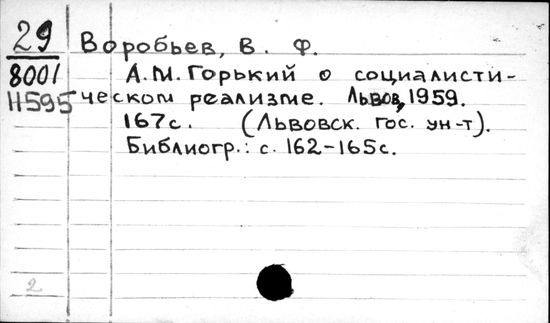 29 Воробьев, В. Ф.
8001 А.М. Горький о социалисти-
11595 ческом реализме. Львов, 1959.
167с. (Львовск. гос. ун-т).
Библиогр.: с. 162-165с.
2